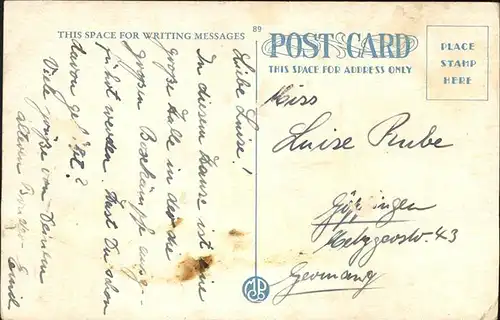 THIS SPACE FOR WRITING MESSAGES
Liebe Luise!
In diesem Hause ist eine
große Halle in der die
großen Boxkämpfe ausge-
führt werden. Hast Du schon
davon gehört?
Viele Grüße von Deinem
älteren Bruder Emil
89
POST CARD
THIS SPACE FOR ADDRESS ONLY
PLACE
STAMP
HERE
Miss
Luise Rube
Göppingen
Metzgerstr. 43
Germany